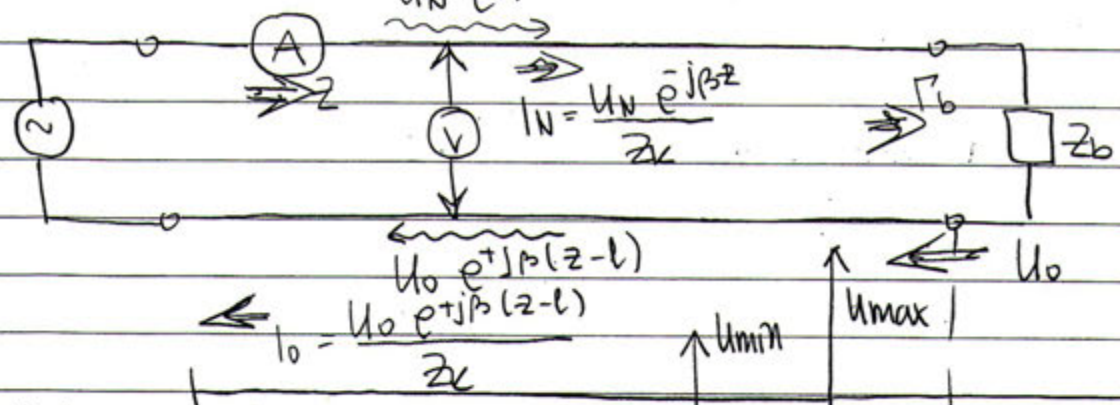 A
Z
V
I_N = U_N e^{-jβz} / Z_K
Γ_b
Z_b
U_0 e^{+jβ(z-l)}
U_0
I_0 = U_0 e^{+jβ(z-l)} / Z_K
U_min
U_max